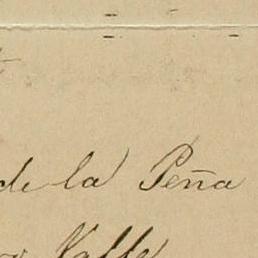 de la Peña
y Valle